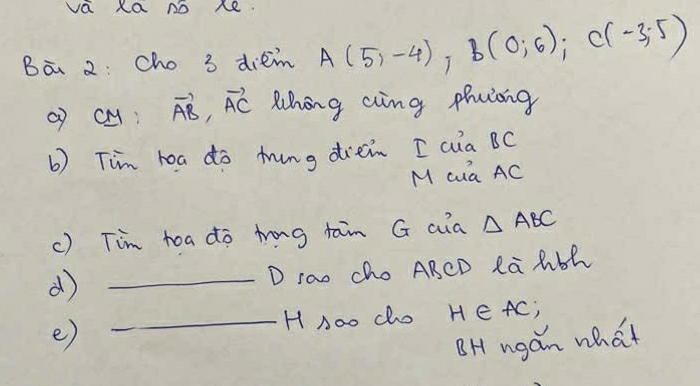 và là số lẻ.
Bài 2: Cho 3 điểm A(5;-4); B(0;6); C(-3;5)
a) CM: \overrightarrow{AB}, \overrightarrow{AC} không cùng phương
b) Tìm tọa độ trung điểm I của BC
M của AC
c) Tìm tọa độ trọng tâm G của Δ ABC
d) ―――― D sao cho ABCD là hbh
e) ―――― H sao cho H ∈ AC;
BH ngắn nhất